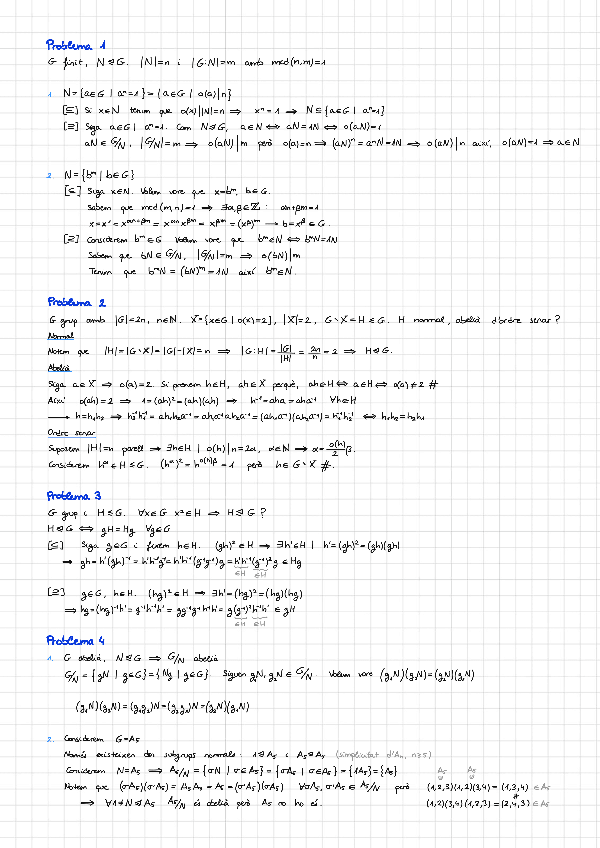 Problema 1
G finit, N ⊴ G. |N|=n i |G:N|=m amb mcd(n,m)=1
1. N = {a∈G | aⁿ=1} = {a∈G | o(a)|n}
[⊆] Si x∈N tenim que o(x)||N|=n ⇒ xⁿ=1 ⇒ N ⊆ {a∈G | aⁿ=1}
[⊇] Siga a∈G | aⁿ=1. Com N⊴G, a∈N ⇔ aN=1N ⇔ o(aN)=1
aN ∈ G/N, |G/N|=m ⇒ o(aN)|m però o(a)=n ⇒ (aN)ⁿ=aⁿN=1N ⇒ o(aN)|n així, o(aN)=1 ⇒ a∈N
2. N = {bᵐ | b∈G}
[⊆] Siga x∈N. Volem vore que x=bᵐ, b∈G.
Sabem que mcd(m,n)=1 ⇒ ∃α,β∈ℤ : αn+βm=1
x=x¹=x^{αn+βm}=x^{αn}x^{βm}=x^{βm}=(x^β)^m ⟶ b=x^β∈G.
[⊇] Considerem bᵐ∈G Volem vore que bᵐ∈N ⇔ bᵐN=1N
Sabem que bN∈G/N, |G/N|=m ⇒ o(bN)|m
Tenim que bᵐN=(bN)ᵐ=1N així bᵐ∈N.
Problema 2
G grup amb |G|=2n, n∈ℕ. X={x∈G | o(x)=2}, |X|=2, G∖X=H≤G. H normal, abelià d'ordre senar?
Normal
Notem que |H|=|G∖X|=|G|-|X|=n ⇒ |G:H|=|G|/|H|=2n/n=2 ⇒ H⊴G.
Abelià
Siga a∈X ⇒ o(a)=2. Si prenem h∈H, ah∈X perquè, ah∈H⇔a∈H⇔o(a)≠2 #
Així o(ah)=2 ⇒ 1=(ah)²=(ah)(ah) ⇒ h⁻¹=aha=aha⁻¹ ∀h∈H
⟶ h=h₁h₂ ⇒ h₂⁻¹h₁⁻¹=ah₁h₂a⁻¹=ah₁a⁻¹ah₂a⁻¹=(ah₁a⁻¹)(ah₂a⁻¹)=h₁⁻¹h₂⁻¹ ⇔ h₁h₂=h₂h₁
Ordre senar
Suposem |H|=n parell ⇒ ∃h∈H | o(h)|n=2α, α∈ℕ ⇒ α=o(h)/2 β.
Considerem hᵅ∈H≤G. (hᵅ)²=h^{o(h)β}=1 però h∈G∖X #.
Problema 3
G grup i H≤G. ∀x∈G x²∈H ⇒ H⊴G ?
H⊴G ⇔ gH=Hg ∀g∈G
[⊆] Siga g∈G i fixem h∈H. (gh)²∈H ⇒ ∃h'∈H | h'=(gh)²=(gh)(gh)
⇒ gh=h'(gh)⁻¹=h'h⁻¹g⁻¹=h'h⁻¹(g⁻¹g⁻¹)g=h'h⁻¹(g⁻¹)²g ∈ Hg
∈H ∈H
[⊇] g∈G, h∈H. (hg)²∈H ⇒ ∃h'=(hg)²=(hg)(hg)
⇒ hg=(hg)⁻¹h'=g⁻¹h⁻¹h'=gg⁻¹g⁻¹h⁻¹h'=g(g⁻¹)²h⁻¹h' ∈ gH
∈H ∈H
Problema 4
1. G abelià, N⊴G ⇒ G/N abelià
G/N={gN | g∈G}={Ng | g∈G}. Siguen g₁N,g₂N∈G/N. Volem vore (g₁N)(g₂N)=(g₂N)(g₁N)
(g₁N)(g₂N)=(g₁g₂)N=(g₂g₁)N=(g₂N)(g₁N)
2. Considerem G=A₅
Només existeixen dos subgrups normals: 1⊴A₅ i A₅⊴A₅ (simplicitat d'Aₙ, n≥5)
Considerem N=A₅ ⇒ A₅/N={σN | σ∈A₅}={σA₅ | σ∈A₅}={1A₅}={A₅}
Notem que (σA₅)(σ'A₅)=A₅A₅=A₅=(σ'A₅)(σA₅) ∀σA₅,σ'A₅∈A₅/N però (1,2,3)(1,2)(3,4)=(1,3,4) ∈A₅
⇒ ∀1≠N⊴A₅ A₅/N és abelià però A₅ no ho és. (1,2)(3,4)(1,2,3)=(2,4,3) ∈A₅